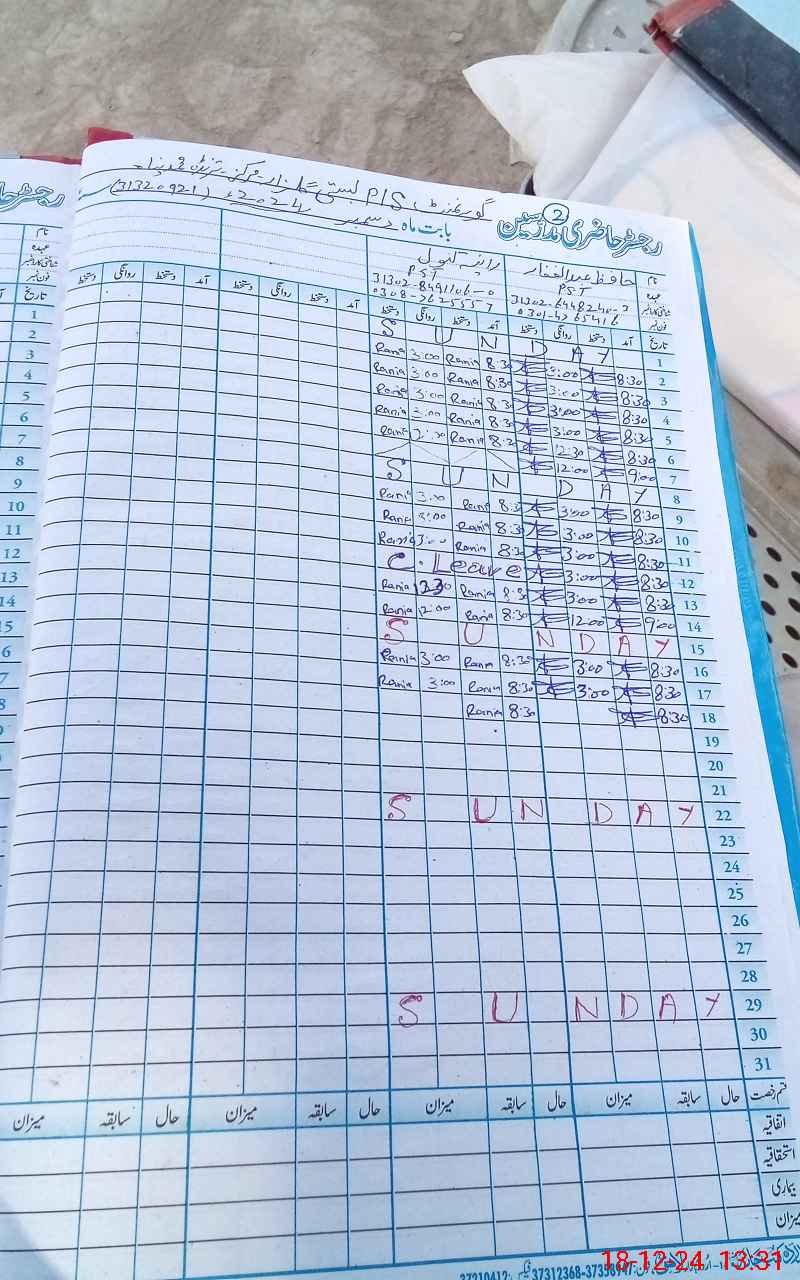 رجسٹر حاضری مدارسین
2
گورنمنٹ P/S بستی
بابت ماہ دسمبر 2024 (31320921)
نام حافظ عبدالغفار
عہدہ PST PST
شناختی کارڈ نمبر
فون نمبر
تاریخ آمد دستخط روانگی دستخط آمد دستخط روانگی دستخط آمد دستخط روانگی دستخط آمد دستخط روانگی دستخط
1 SUNDAY
2 8:30 3:00 8:30 Rania 3:00 Rania
3 8:30 3:00 8:30 Rania 3:00 Rania
4 8:30 3:00 8:30 Rania 3:00 Rania
5 8:30 3:00 8:30 Rania 3:00 Rania
6 8:30 12:30 8:30 Rania Rania
7 9:00 12:00
8 SUNDAY
9 8:30 3:00 8:30 Rania 3:00 Rania
10 8:30 3:00 8:30 Rania 3:00 Rania
11 8:30 3:00 8:30 Rania 3:00 Rania
12 8:30 3:00 C. Leave
13 8:30 3:00 8:30 Rania Rania
14 9:00 12:00 8:30 Rania 12:00 Rania
15 SUNDAY
16 8:30 3:00 8:30 Rania 3:00 Rania
17 8:30 3:00 8:30 Rania 3:00 Rania
18 8:30 8:30 Rania
19
20
21
22 SUNDAY
23
24
25
26
27
28
29 SUNDAY
30
31
قسم رخصت حال سابقہ میزان حال سابقہ میزان حال سابقہ میزان حال سابقہ میزان
اتفاقیہ
استحقاقیہ
بیماری
میزان
18-12-24 13:31